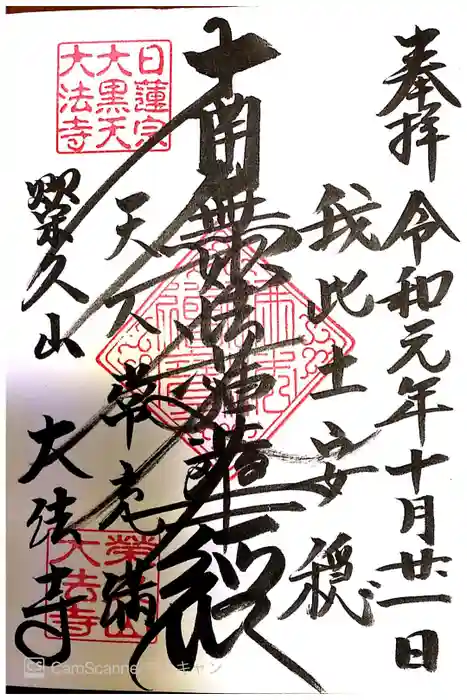 奉拝 令和元年十月廿一日
我此土安穏
南無妙法蓮華経
天人常充満
榮久山 大法寺
日蓮宗
大黒天
大法寺
大法寺
CS CamScanner
キャン